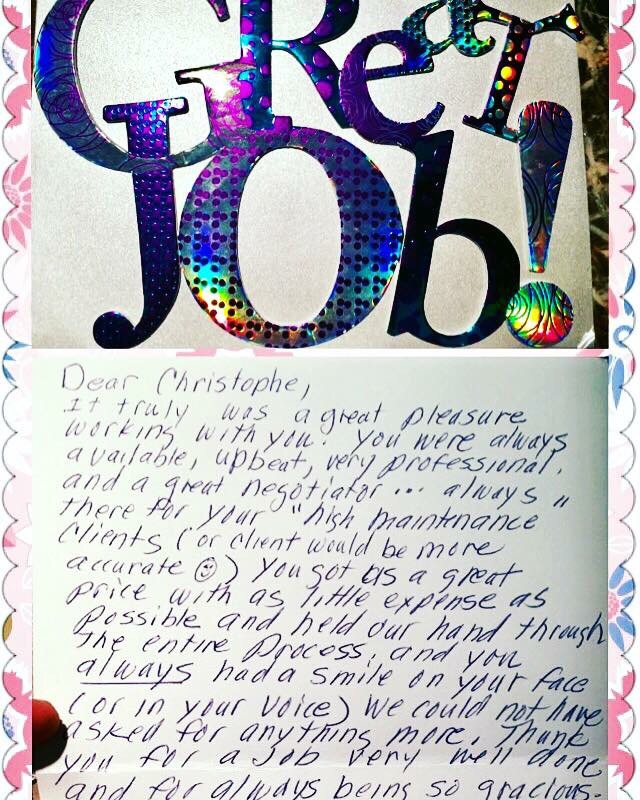 GReaT
JOb!
Dear Christophe,
It truly was a great pleasure
working with you. You were always
available, upbeat, very professional,
and a great negotiator ... always
there for your "high maintnance"
Clients (or client would be more
accurate ☺) You got us a great
price with as little expense as
possible and held our hand through
the entire process, and you
always had a smile on your face
(or in your voice) We could not have
asked for anything more. Thank
you for a Job very well done
and for always being so gracious.